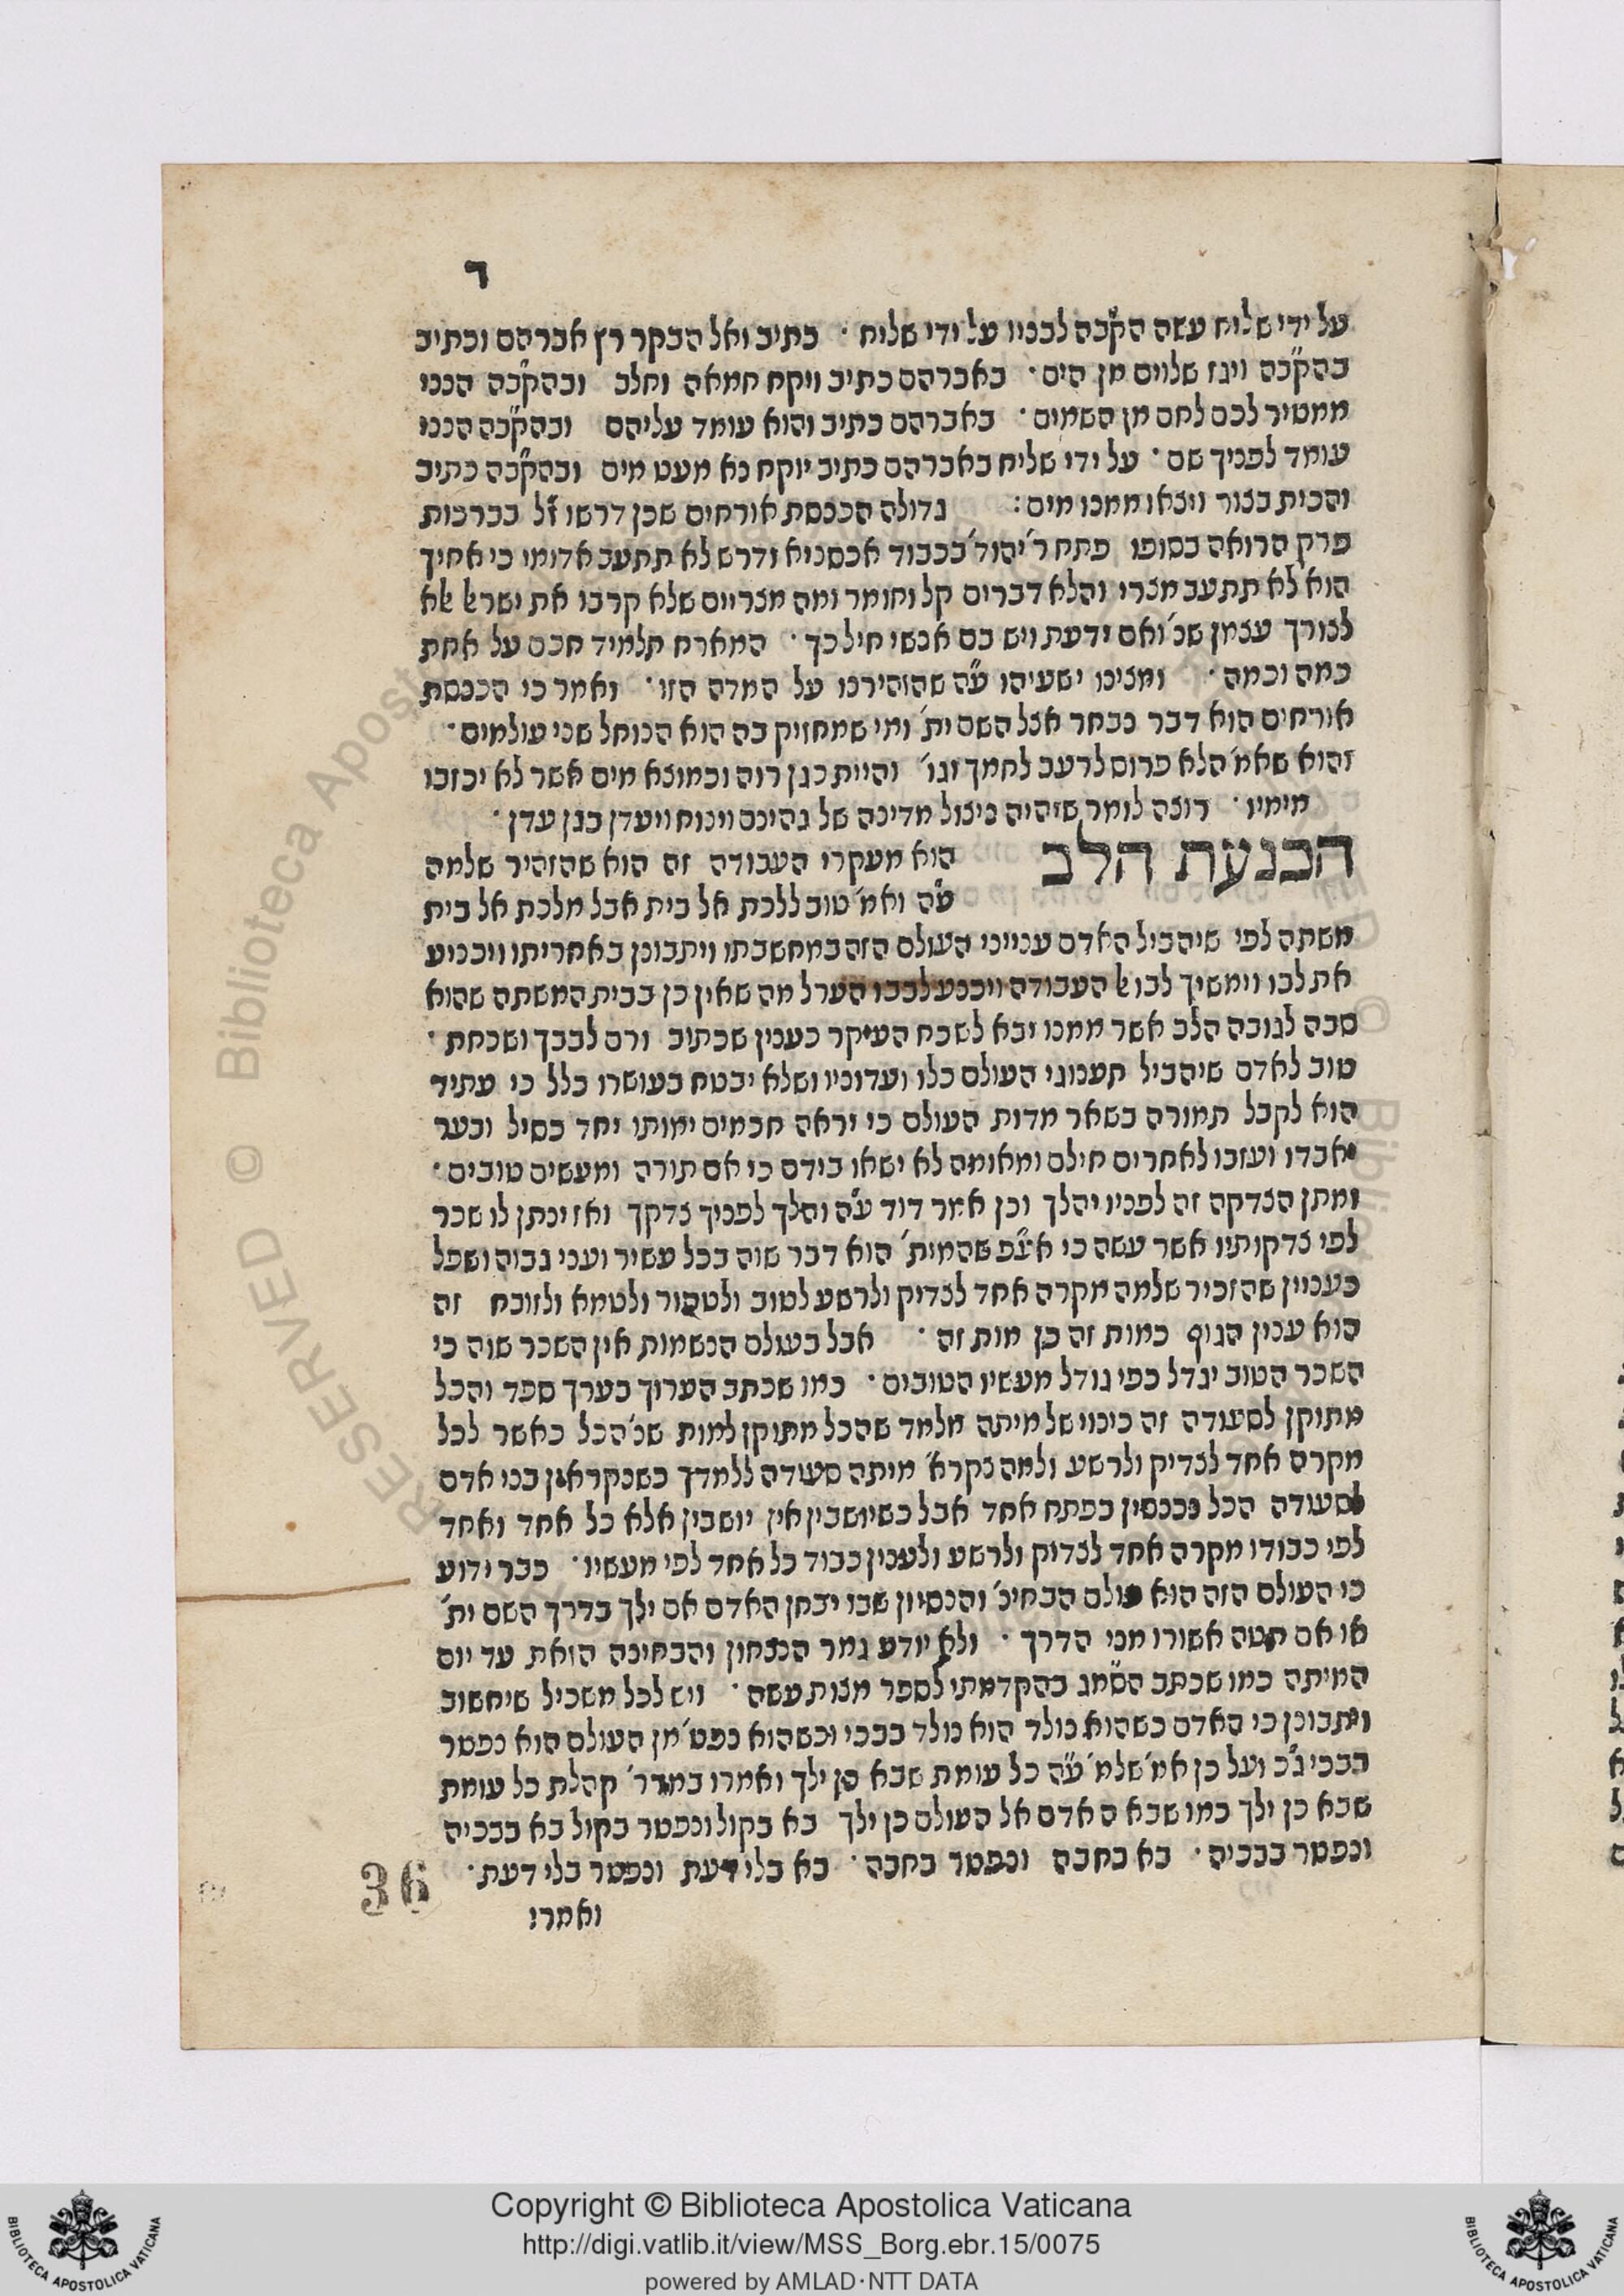 ד
על ידי שליח עשה הק̈בה לבניו על ידי שליח · כתיב ואל הבקר רץ אברהם וכתיב
בהק̈בה ויגז שלוים מן הים · באברהם כתיב ויקח חמאה וחלב ובהק̈בה הנני
ממטיר לכם לחם מן השמים · באברהם כתיב והוא עומד עליהם ובהק̈בה הנני
עומד לפניך שם · על ידי שליח באברהם כתיב יוקח נא מעט מים ובהק̈בה כתיב
והכית בצור ויצאו ממנו מים : גדולה הכנסת אורחים שכן דרשו ז̈ל בברכות
פרק הרואה בסופו פתח ר׳ יהוד׳ בכבוד אכסניא ודרש לא תתעב אדומי כי אחיך
הוא לא תתעב מצרי והלא דברים קל וחומר ומה מצריים שלא קרבו את ישראל אלא
לצורך עצמן שנ׳ ואם ידעת ויש בם אנשי חיל כך · המארח תלמיד חכם על אחת
כמה וכמה · ומצינו ישעיהו ע̈ה שהזהירנו על המדה הזו · ואמר כי הכנסת
אורחים הוא דבר נבחר אצל השם ית׳ ומי שמחזיק בה הוא הנוחל שני עולמים ·
זהוא שאמ׳ הלא פרוס לרעב לחמך וגו׳ והיית כגן רוה וכמוצא מים אשר לא יכזבו
מימיו · רוצה לומר שיהיה ניצול מדינה של גהינם וינוח ויעדן בגן עדן ·
הכנעת הלב הוא מעקרי העבודה זה הוא שהזהיר שלמה
ע̈ה ואמ׳ טוב ללכת אל בית אבל מלכת אל בית
משתה לפי שיהביל האדם ענייני העולם הזה במחשבתו ויתבונן באחריתו ויכניע
את לבו וימשיך לבו אל העבודה ויכנע לבבו הערל מה שאין כן בבית המשתה שהוא
סבה לגובה הלב אשר ממנו יבא לשכח העיקר כענין שכתוב ורם לבבך ושכחת ·
טוב לאדם שיהביל תענוגי העולם כלו ועדוניו ושלא יבטח בעושרו כלל כי עתיד
הוא לקבל תמורה בשאר מדות העולם כי יראה חכמים ימותו יחד כסיל ובער
יאבדו ועזבו לאחרים חילם ומאומה לא ישאו בידם כי אם תורה ומעשים טובים ·
ומתן הצדקה זה לפניו יהלך וכן אמר דוד ע̈ה והלך לפניך צדקך ואז ינתן לו שכר
לפי צדקותיו אשר עשה כי אע̈פ שהמית׳ הוא דבר שוה בכל עשיר ועני גבוה ושפל
כעניין שהזכיר שלמה מקרה אחד לצדיק ולרשע לטוב ולטהור ולטמא ולזובח זה
הוא ענין הגוף כמות זה כן מות זה · אבל בעולם הנשמות אין השכר שוה כי
השכר הטוב יגדל כפי גודל מעשיו הטובים · כמו שכתב הערוך בערך ספד והכל
מתוקן לסעודה זה כינוי של מיתה מלמד שהכל מתוקן למות שנ׳ הכל כאשר לכל
מקרה אחד לצדיק ולרשע ולמה נקרא׳ מיתה סעודה ללמדך כשנקראין בני אדם
לסעודה הכל נכנסין בפתח אחד אבל כשיושבין אין יושבין אלא כל אחד ואחד
לפי כבודו מקרה אחד לצדיק ולרשע ולענין כבוד כל אחד לפי מעשיו · כבר ידוע
כי העולם הזה הוא עולם הבחינ׳ והנסיון שבו יבחן האדם אם ילך בדרך השם ית׳
או אם תטה אשורו מני הדרך · ולא יודע גמר הנצחון והבחינה הזאת עד יום
המיתה כמו שכתב הס̈מג בהקדמתו לספר מצות עשה · ויש לכל משכיל שיחשוב
ויתבונן כי האדם כשהוא נולד הוא נולד בבכי וכשהוא נפט׳ מן העולם הוא נפטר
בבכי ג̈כ ועל כן אמ׳ שלמ׳ ע̈ה כל עומת שבא כן ילך ואמרו במדר׳ קהלת כל עומת
שבא כן ילך כמו שבא האדם אל העולם כן ילך בא בקול ונפטר בקול בא בבכיה
ונפטר בבכיה · בא בחבה ונפטר בחבה · בא בלי דעת ונפטר בלי דעת ·
ואמרו
36
Copyright © Biblioteca Apostolica Vaticana
http://digi.vatlib.it/view/MSS_Borg.ebr.15/0075
powered by AMLAD·NTT DATA